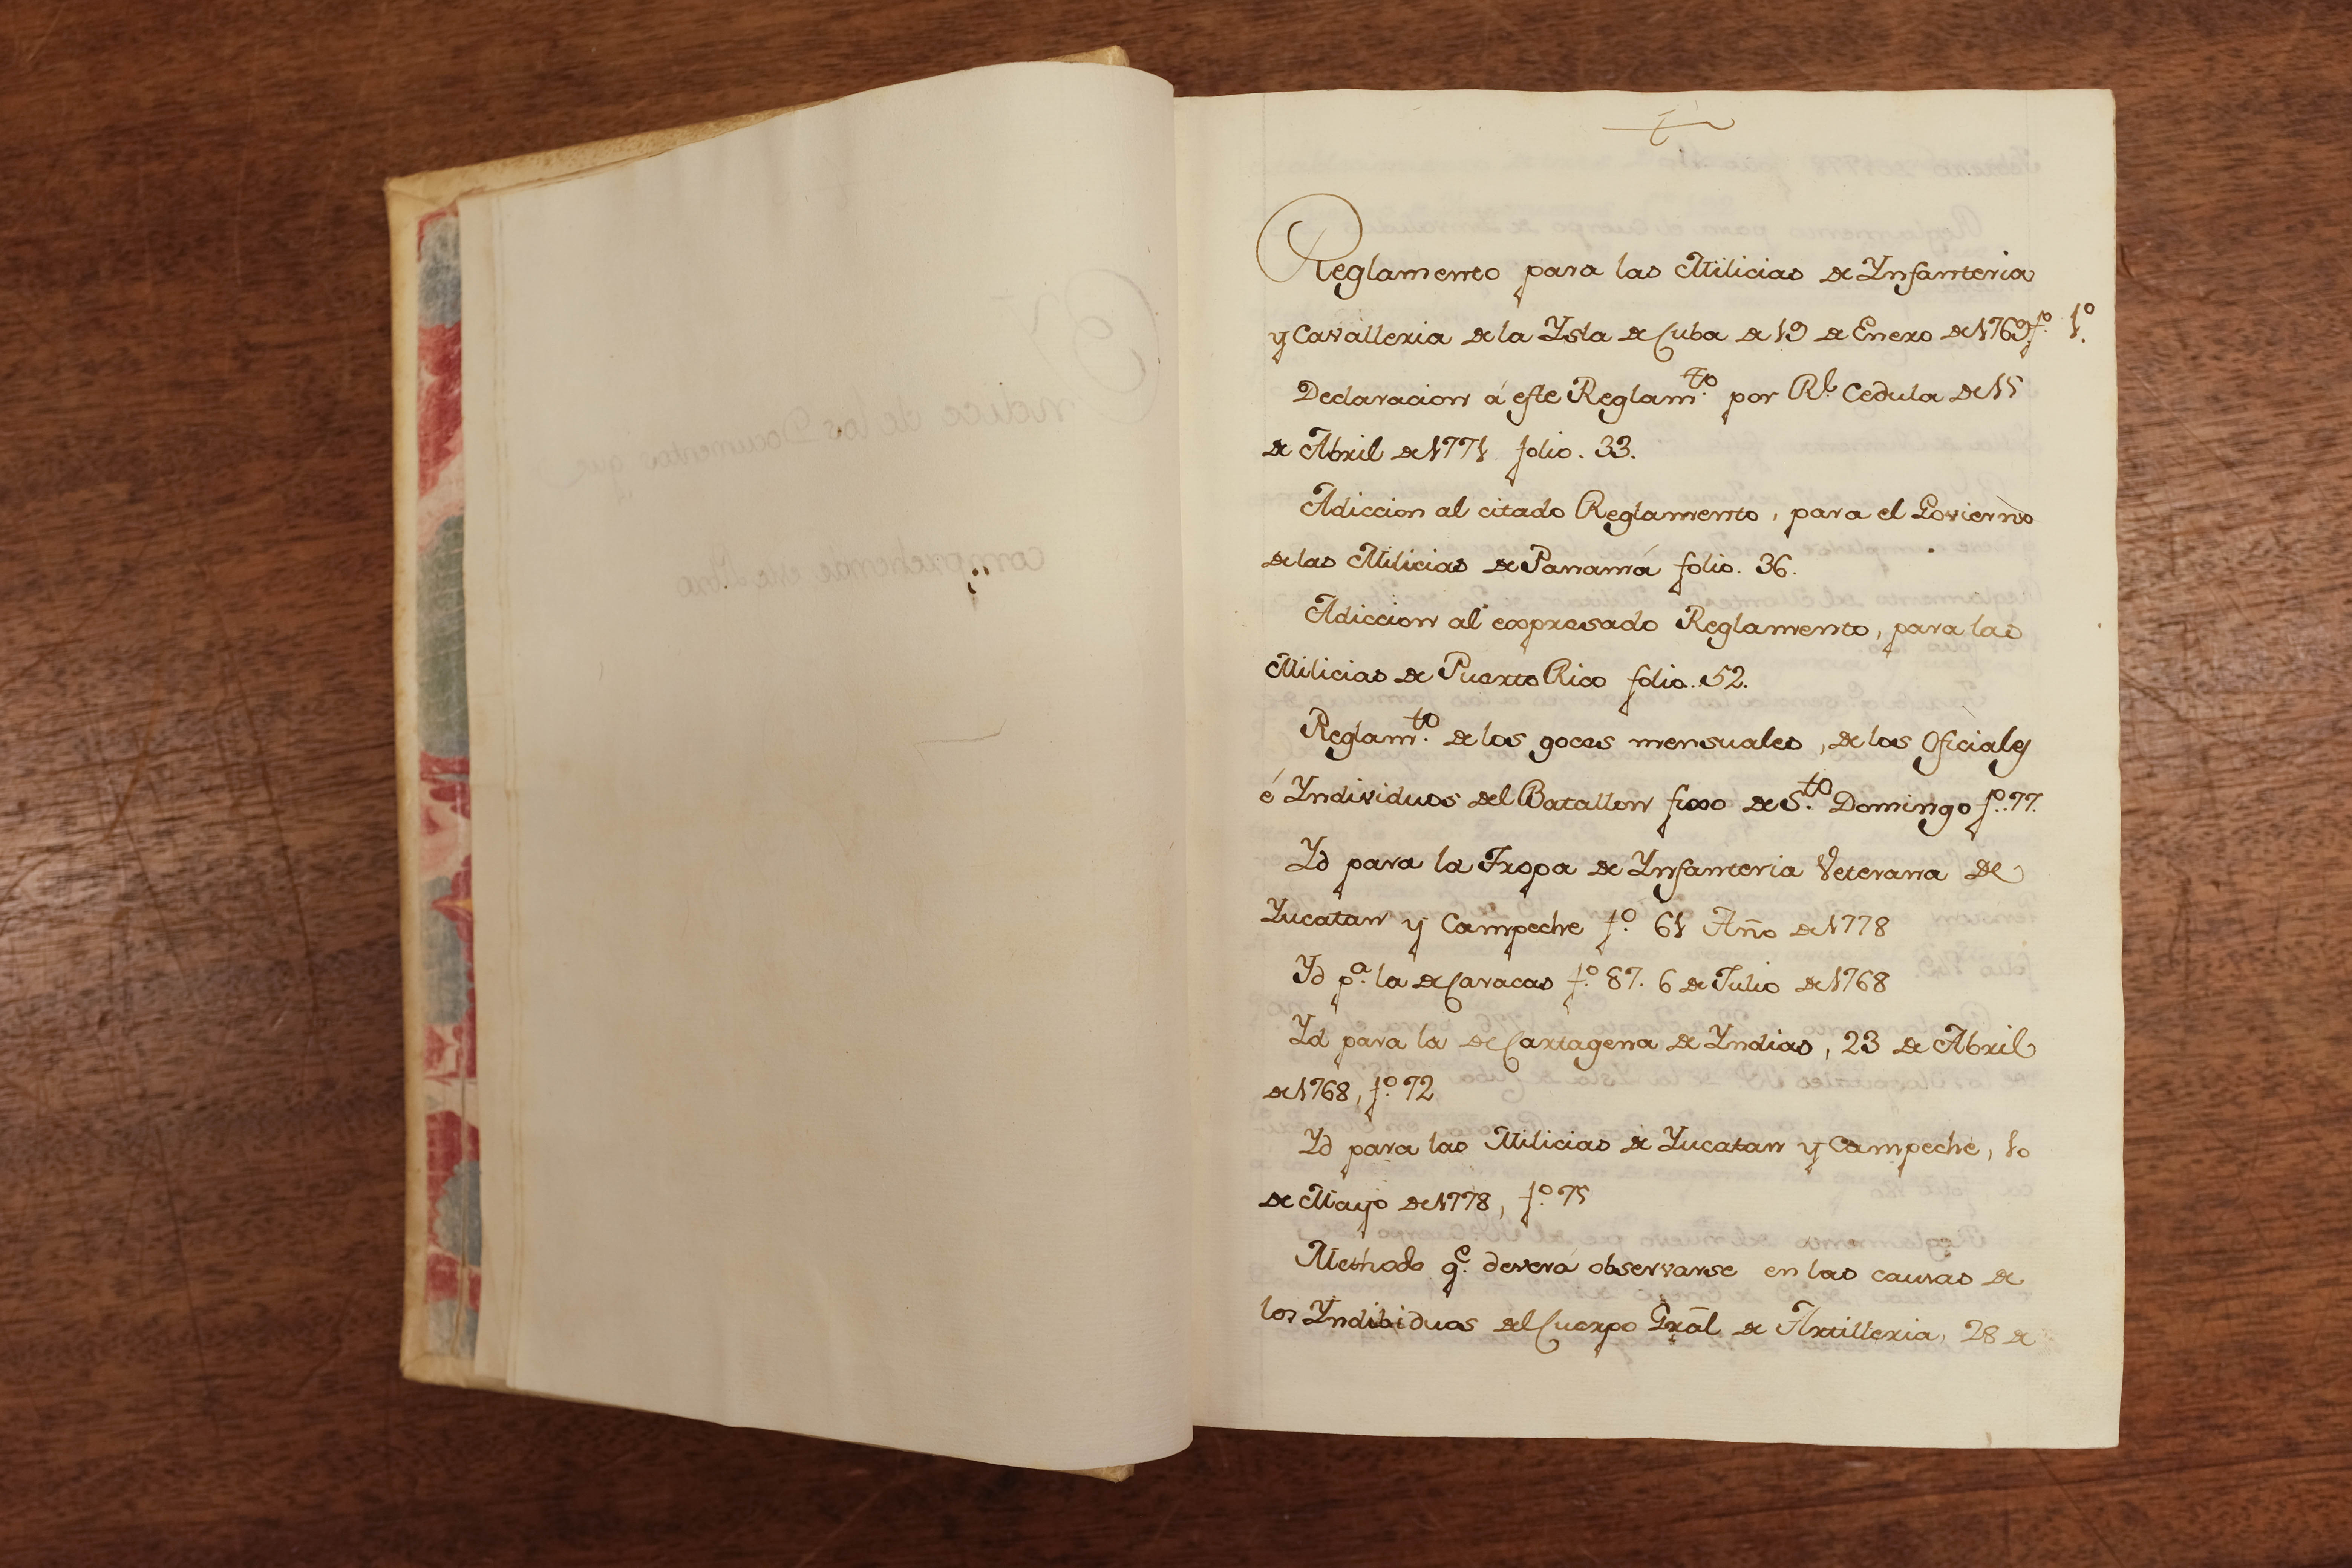 Yndice de los Documentos que
comprehende este Libro
Reglamento para las Milicias de Ynfanteria
y Cavalleria de la Ysla de Cuba de 19 de Enero de 1769 fº. 1º.
Declaracion á este Reglamto. por Rl. Cedula de 15
de Abril de 1771 folio. 33.
Adiccion al citado Reglamento, para el Govierno
de las Milicias de Panamá folio. 36.
Adiccion al expresado Reglamento, para las
Milicias de Puerto Rico folio. 52.
Reglamto. de los goces mensuales, de los Oficiales
é Yndividuos del Batallon fixo de Sto. Domingo fº. 77.
Yd para la Tropa de Ynfanteria Veterana de
Yucatan y Campeche fº. 61 Año de 1778
Yd pa. la de Caracas fº. 87. 6 de Julio de 1768
Yd para la de Cartagena de Yndias, 23 de Abril
de 1768, fº. 72
Yd para las Milicias de Yucatan y Campeche, 10
de Mayo de 1778, fº. 75
Methodo qe. deverá observarse en las causas de
los Yndibiduos del Cuerpo Grãl de Artilleria, 28 de